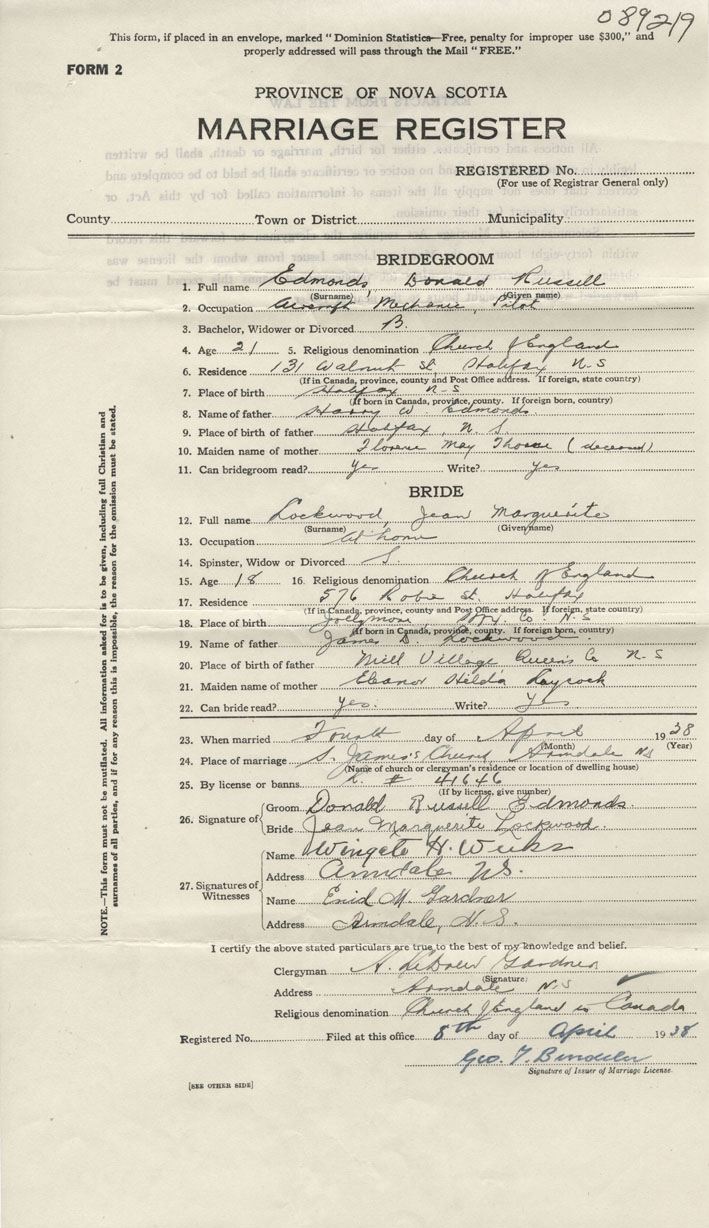 089219
This form, if placed in an envelope, marked "Dominion Statistics—Free, penalty for improper use $300," and
properly addressed will pass through the Mail "FREE."
FORM 2
PROVINCE OF NOVA SCOTIA
MARRIAGE REGISTER
REGISTERED No.
(For use of Registrar General only)
County Town or District Municipality
BRIDEGROOM
1. Full name Edmonds, Donald Russell
(Surname) (Given name)
2. Occupation Aircraft Mechanic, Pilot
3. Bachelor, Widower or Divorced B.
4. Age 21 5. Religious denomination Church of England
6. Residence 131 Walnut St, Halifax N-S
(If in Canada, province, county and Post Office address. If foreign, state country)
7. Place of birth Halifax N-S
(If born in Canada, province, county. If foreign born, country)
8. Name of father Harry W. Edmonds
9. Place of birth of father Halifax, N. S.
10. Maiden name of mother Florence May (deceased)
11. Can bridegroom read? Yes Write? Yes
BRIDE
12. Full name Lockwood, Jean Marguerite
(Surname) (Given name)
13. Occupation at home
14. Spinster, Widow or Divorced S.
15. Age 18 16. Religious denomination Church of England
17. Residence 576 Robie St. Halifax
(If in Canada, province, county and Post Office address. If foreign, state country)
18. Place of birth Jollymore Hfx. Co. N-S
(If born in Canada, province, county. If foreign born, country)
19. Name of father James D. Lockwood
20. Place of birth of father Mill Village Queens Co N-S
21. Maiden name of mother Eleanor Hilda Laycock
22. Can bride read? Yes. Write? Yes
23. When married Fourth day of April 1938
(Month) (Year)
24. Place of marriage S. James's Church Armdale NS
(Name of church or clergyman's residence or location of dwelling house)
25. By license or banns L. # 41646
(If by license, give number)
26. Signature of Groom Donald Russell Edmonds.
Bride Jean Marguerite Lockwood.
27. Signatures of Witnesses
Name Wingate H. Weeks
Address Armdale NS.
Name Enid M. Gardner
Address Armdale, N.S.
I certify the above stated particulars are true to the best of my knowledge and belief.
Clergyman A. Gardner
(Signature)
Address Armdale N-S
Religious denomination Church of England in Canada
Registered No. Filed at this office 8th day of April 1938
Geo. T.
Signature of Issuer of Marriage License.
[SEE OTHER SIDE]
NOTE.—This form must not be mutilated. All information asked for is to be given, including full Christian and
surnames of all parties, and if for any reason this is impossible, the reason for the omission must be stated.